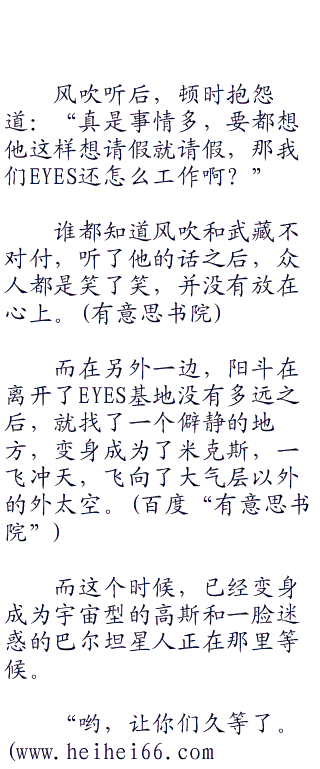 风吹听后，顿时抱怨
道：“真是事情多，要都想
他这样想请假就请假，那我
们EYES还怎么工作啊？”
谁都知道风吹和武藏不
对付，听了他的话之后，众
人都是笑了笑，并没有放在
心上。(有意思书院)
而在另外一边，阳斗在
离开了EYES基地没有多远之
后，就找了一个僻静的地
方，变身成为了米克斯，一
飞冲天，飞向了大气层以外
的外太空。(百度“有意思书
院”)
而这个时候，已经变身
成为宇宙型的高斯和一脸迷
惑的巴尔坦星人正在那里等
候。
“哟，让你们久等了。
(www.heihei66.com